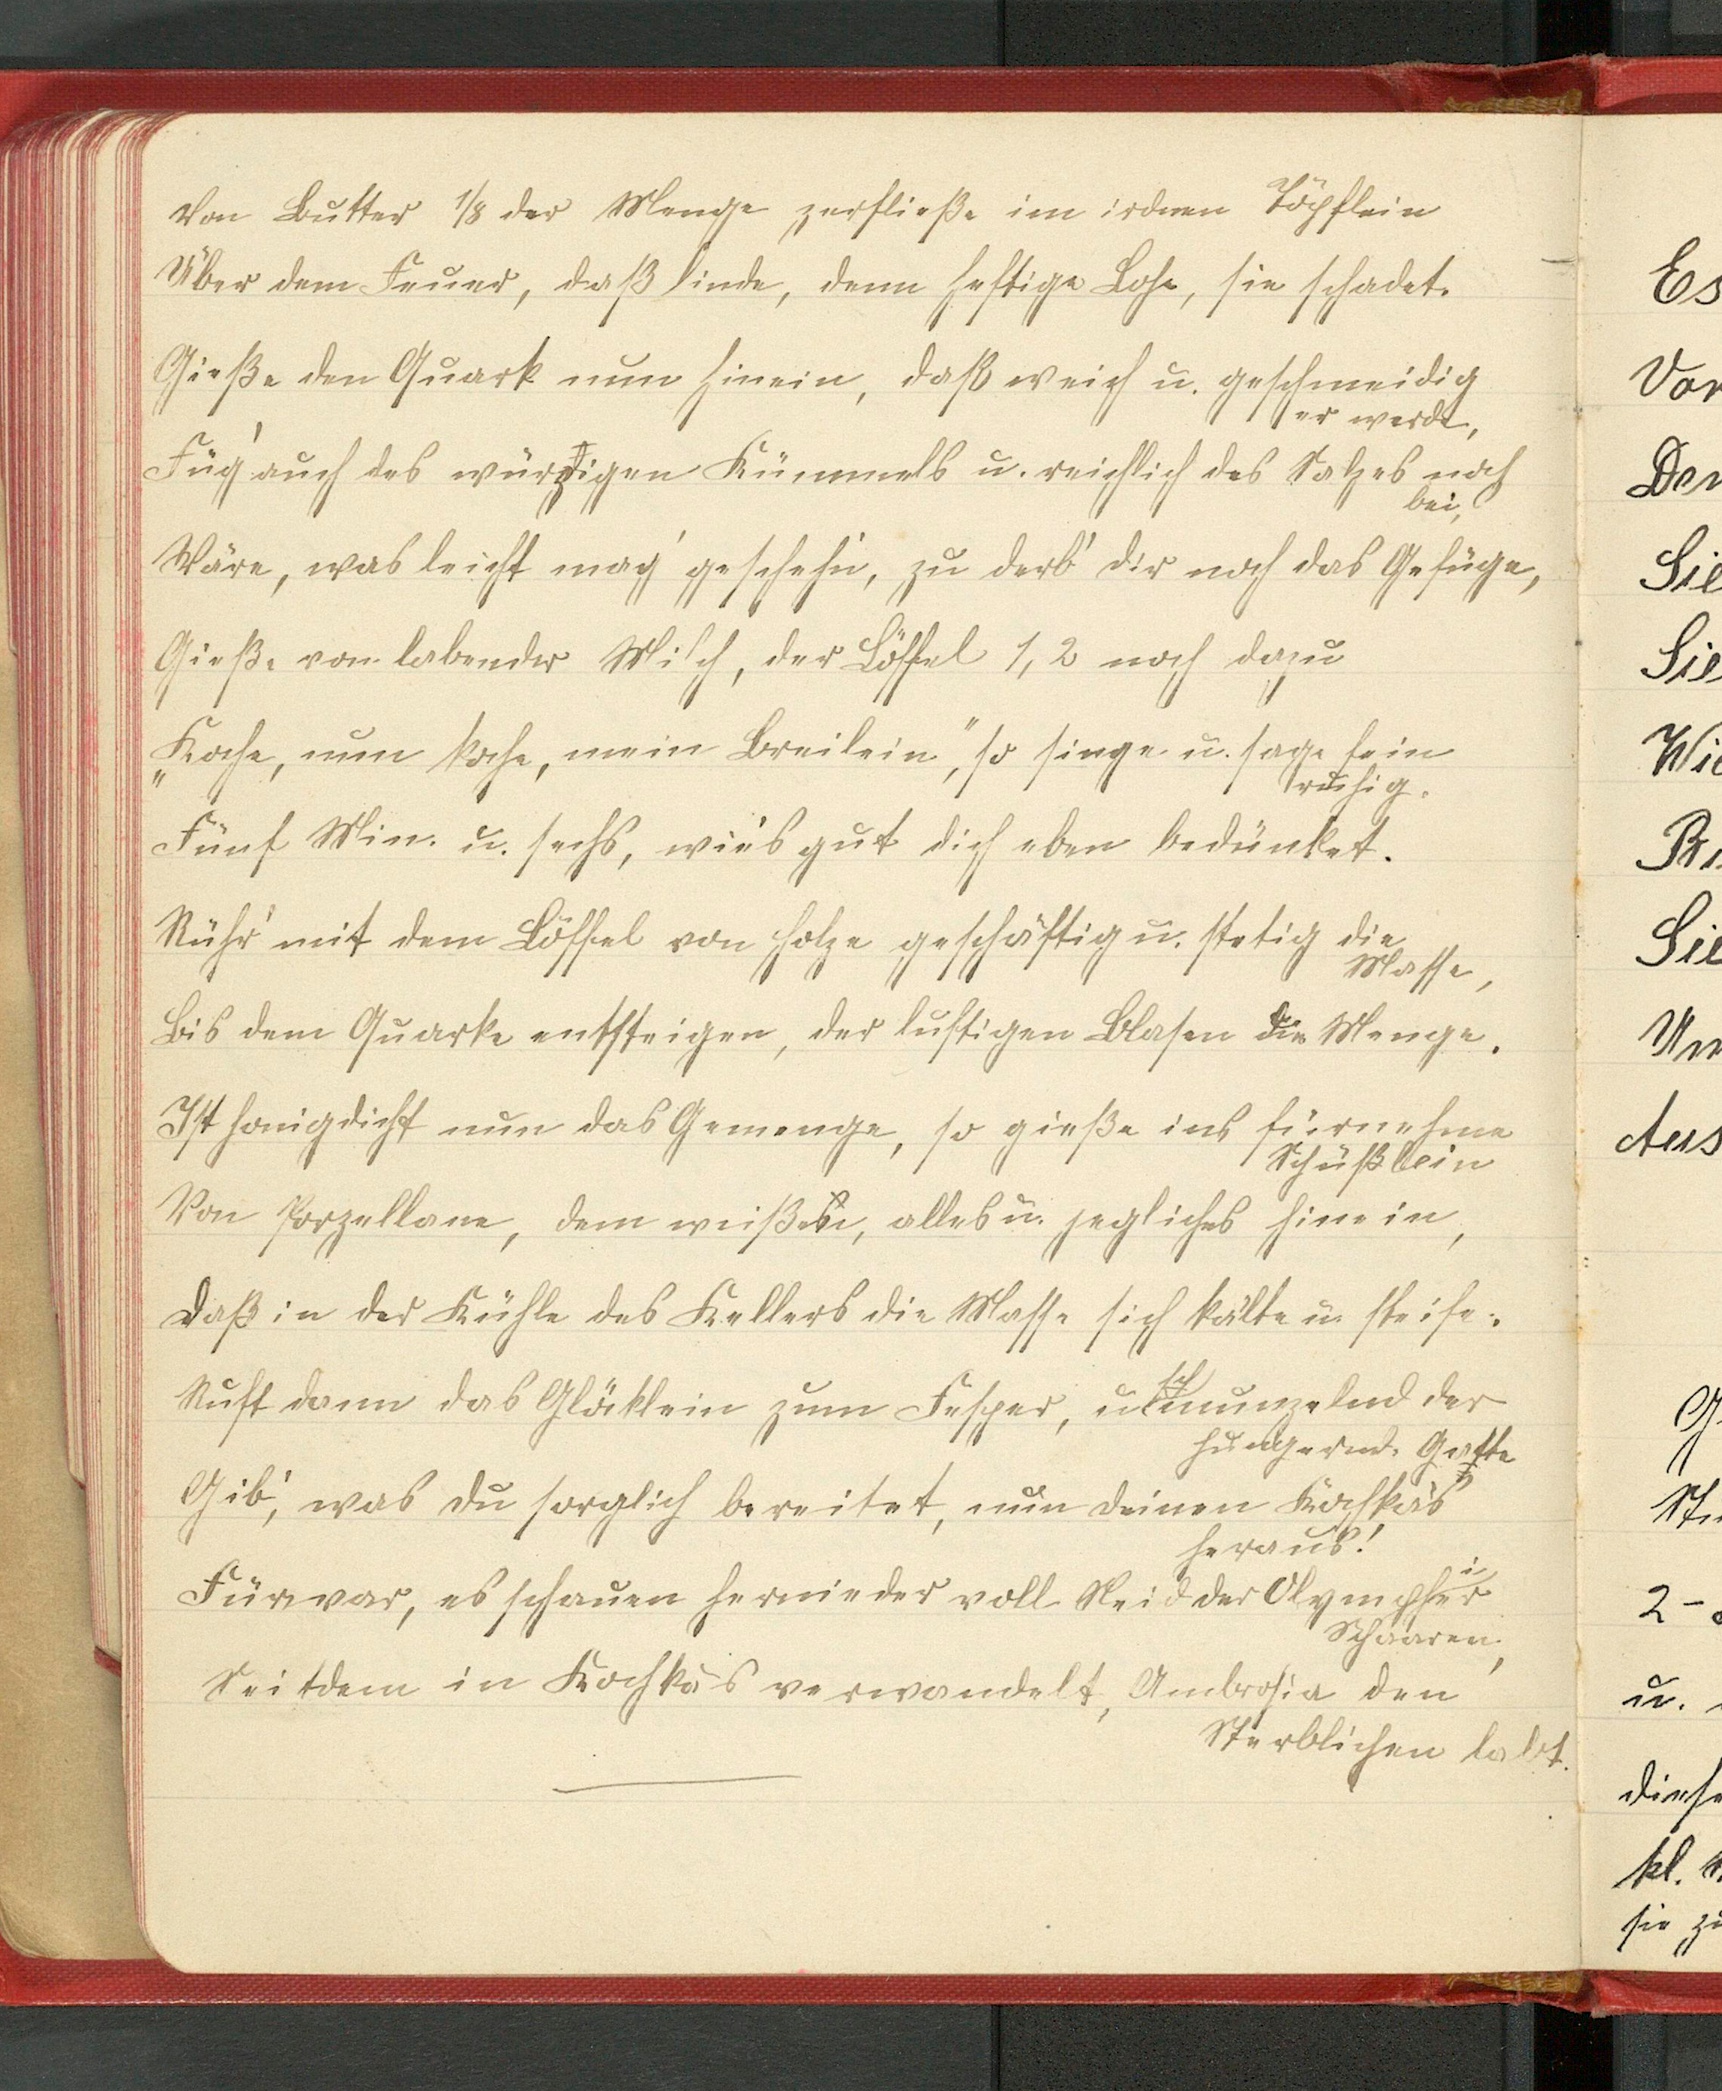 Von Butter 1/8 der Menge zerfließe im irdnen Töpflein
Über dem Feuer, daß linde, denn heftige Lohe, sie schadet.
Gieße den Quark nun hinein, daß weich u. geschmeidig
er werde,
Füg' auch des würzigen Kümmels u. reichlich des Salzes noch
bei,
Wäre, was leicht mag' geschehn, zu derb' dir noch das Gefüge,
Gieße von labender Milch, der Löffel 1, 2 noch dazu
"Koche, nun koche, mein Breilein", so singe u. sage fein
ruhig.
Fünf Min. u. sechs, wie's gut dich eben bedünket.
Rühr' mit dem Löffel von Holze geschäftig u. stetig die
Masse,
Bis dem Quarke entsteigen, der luftigen Blasen die Menge.
Ist honigdicht nun das Gemenge, so gieße ins fürnehme
Schüßlein
Von Porzellane, dem weißen, alles u. jegliches hinein,
Daß in der Kühle des Kellers die Masse sich kälte u. steife.
Ruft dann das Glöcklein zum Fesper, u. schmunzelnd der
hungernde Gatte
Gib', was du sorglich bereitet, nun deinen Kochkäs
heraus!
Fürwar, es schauen hernieder voll Neid der Olympier
Schaaren,
Seitdem in Kochkäs verwandelt, Ambrosia den
Sterblichen labt.
Es
Von
Den
Sie
Sie
Wie
Sie
Aus
2-
u.
diese
kl.
sie zu